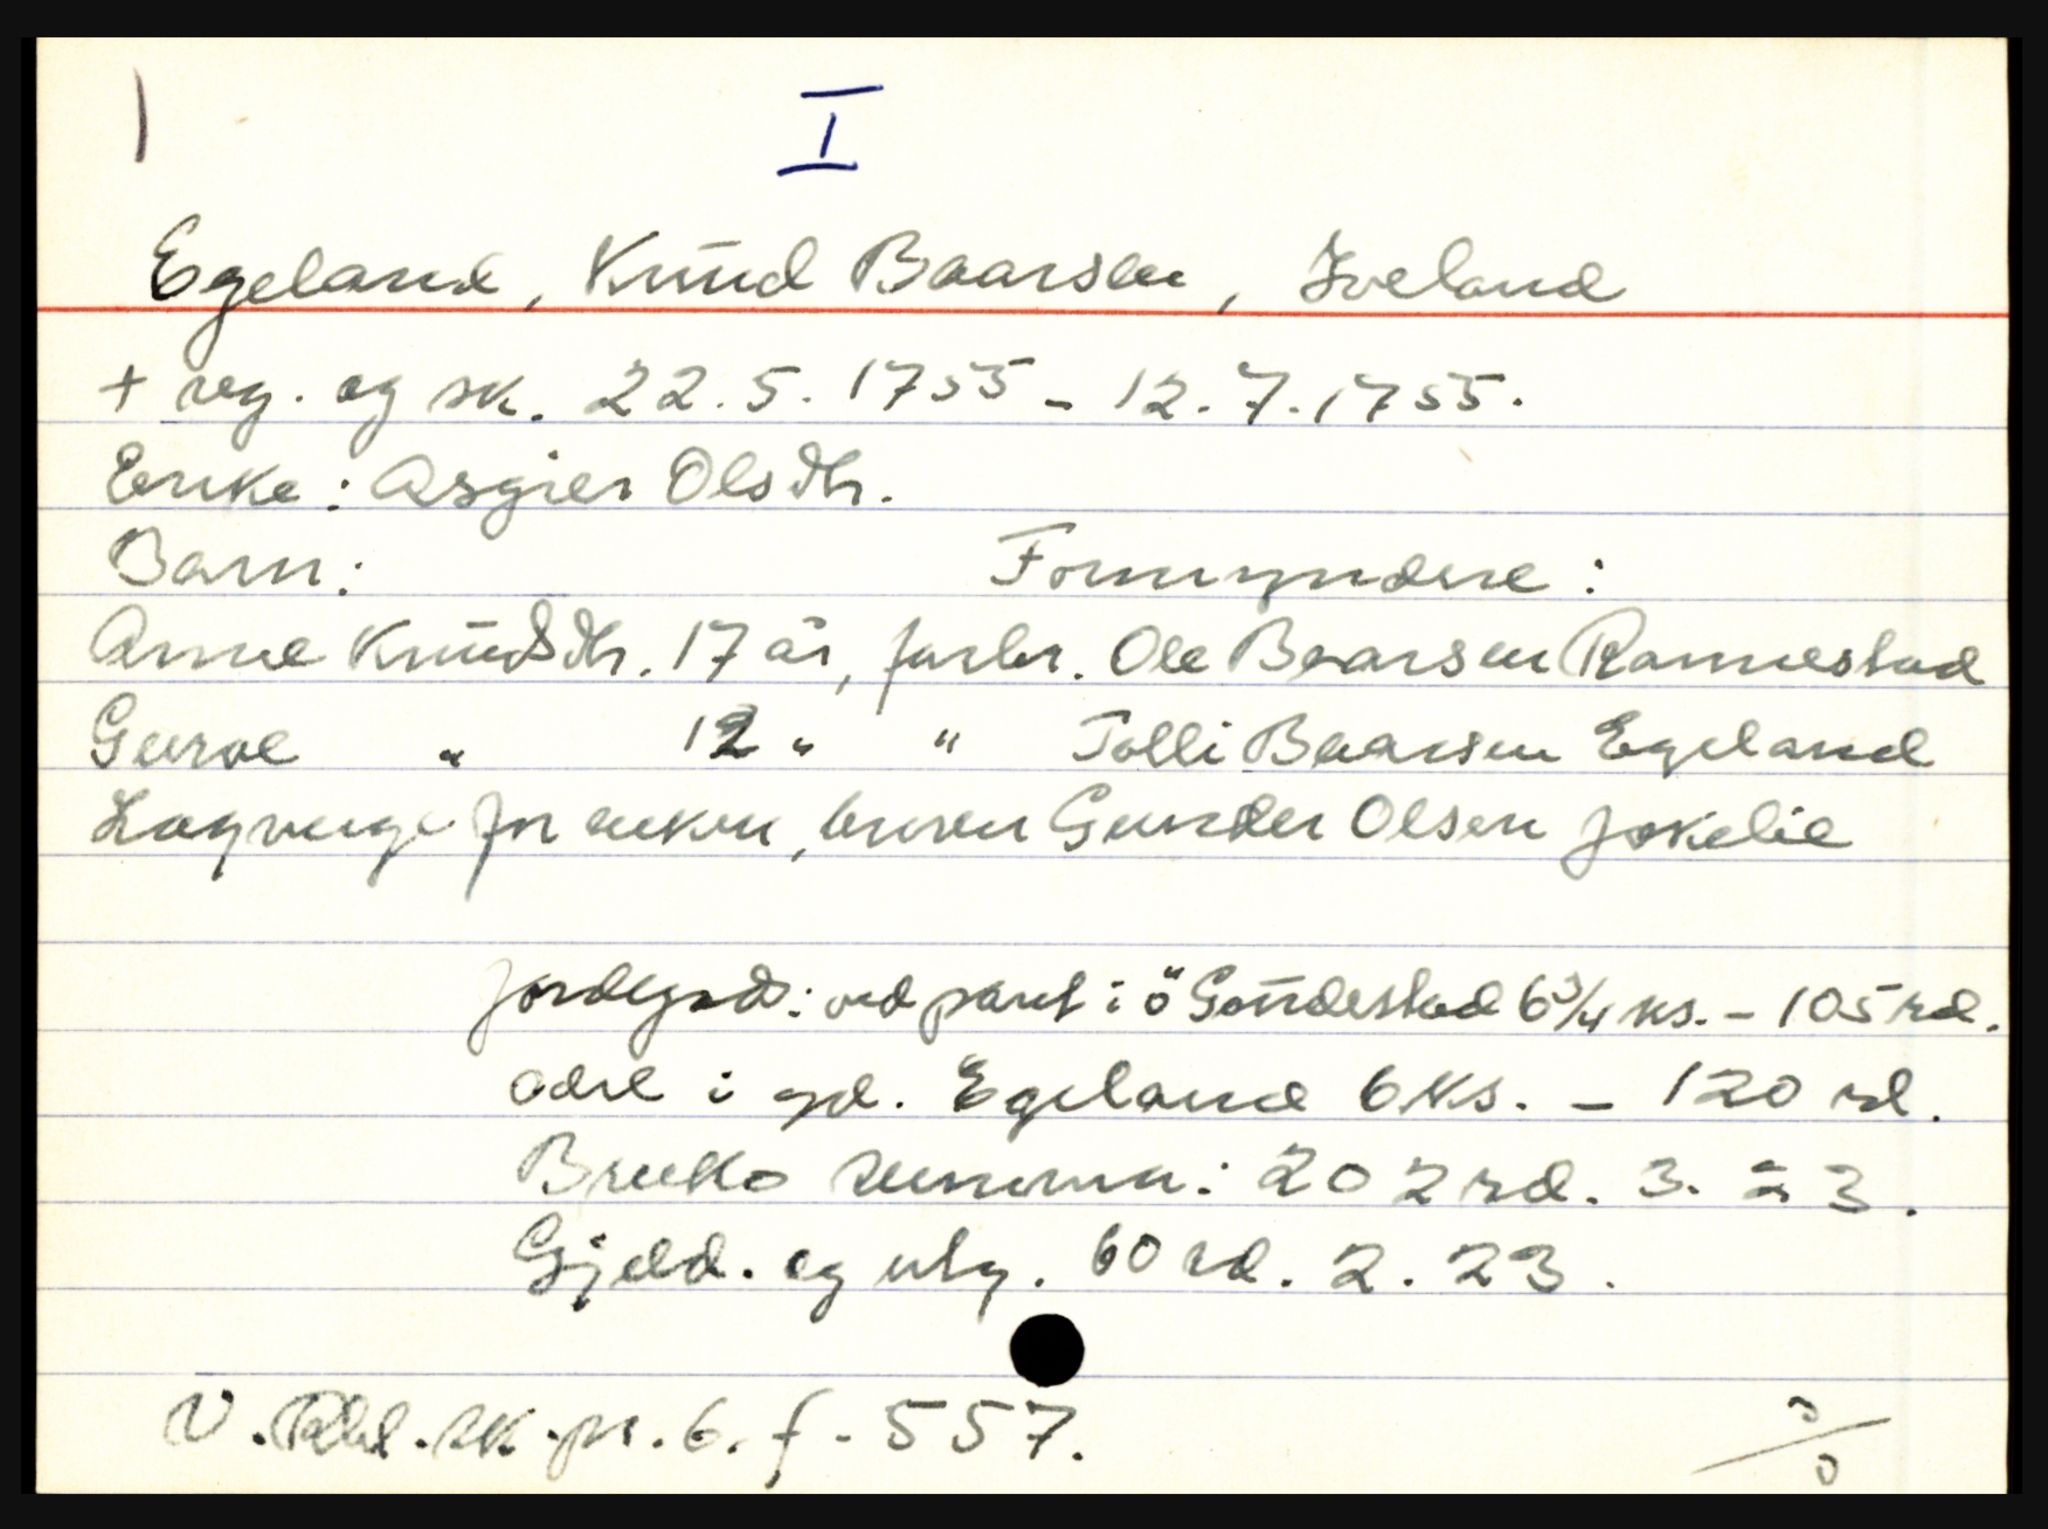 I
Egeland, Knūd Baarsen, Iveland
+ reg. og sk. 22.5.1755 - 12.7.1755.
Enke: Asgier Olsdtr.
Barn: Formyndere:
Anne Knūdsdtr. 17 år, farbr. Ole Baarsen Rannestad
Guroe " 12 " " Tolli Baarsen Egeland
Lagverge for enken, broren Gunder Olsen Jokelie
Jordegods: ved pant i ö Gaūdestad 6 3/4 ks. - 105 rd.
odel i gd. Egeland 6 ks. - 120 rd.
Brutto summa: 202 rd. 3. 23.
Gjeld. og utg. 60 rd. 2. 23.
V. Rbl. sk. pr. 6. f. 557.